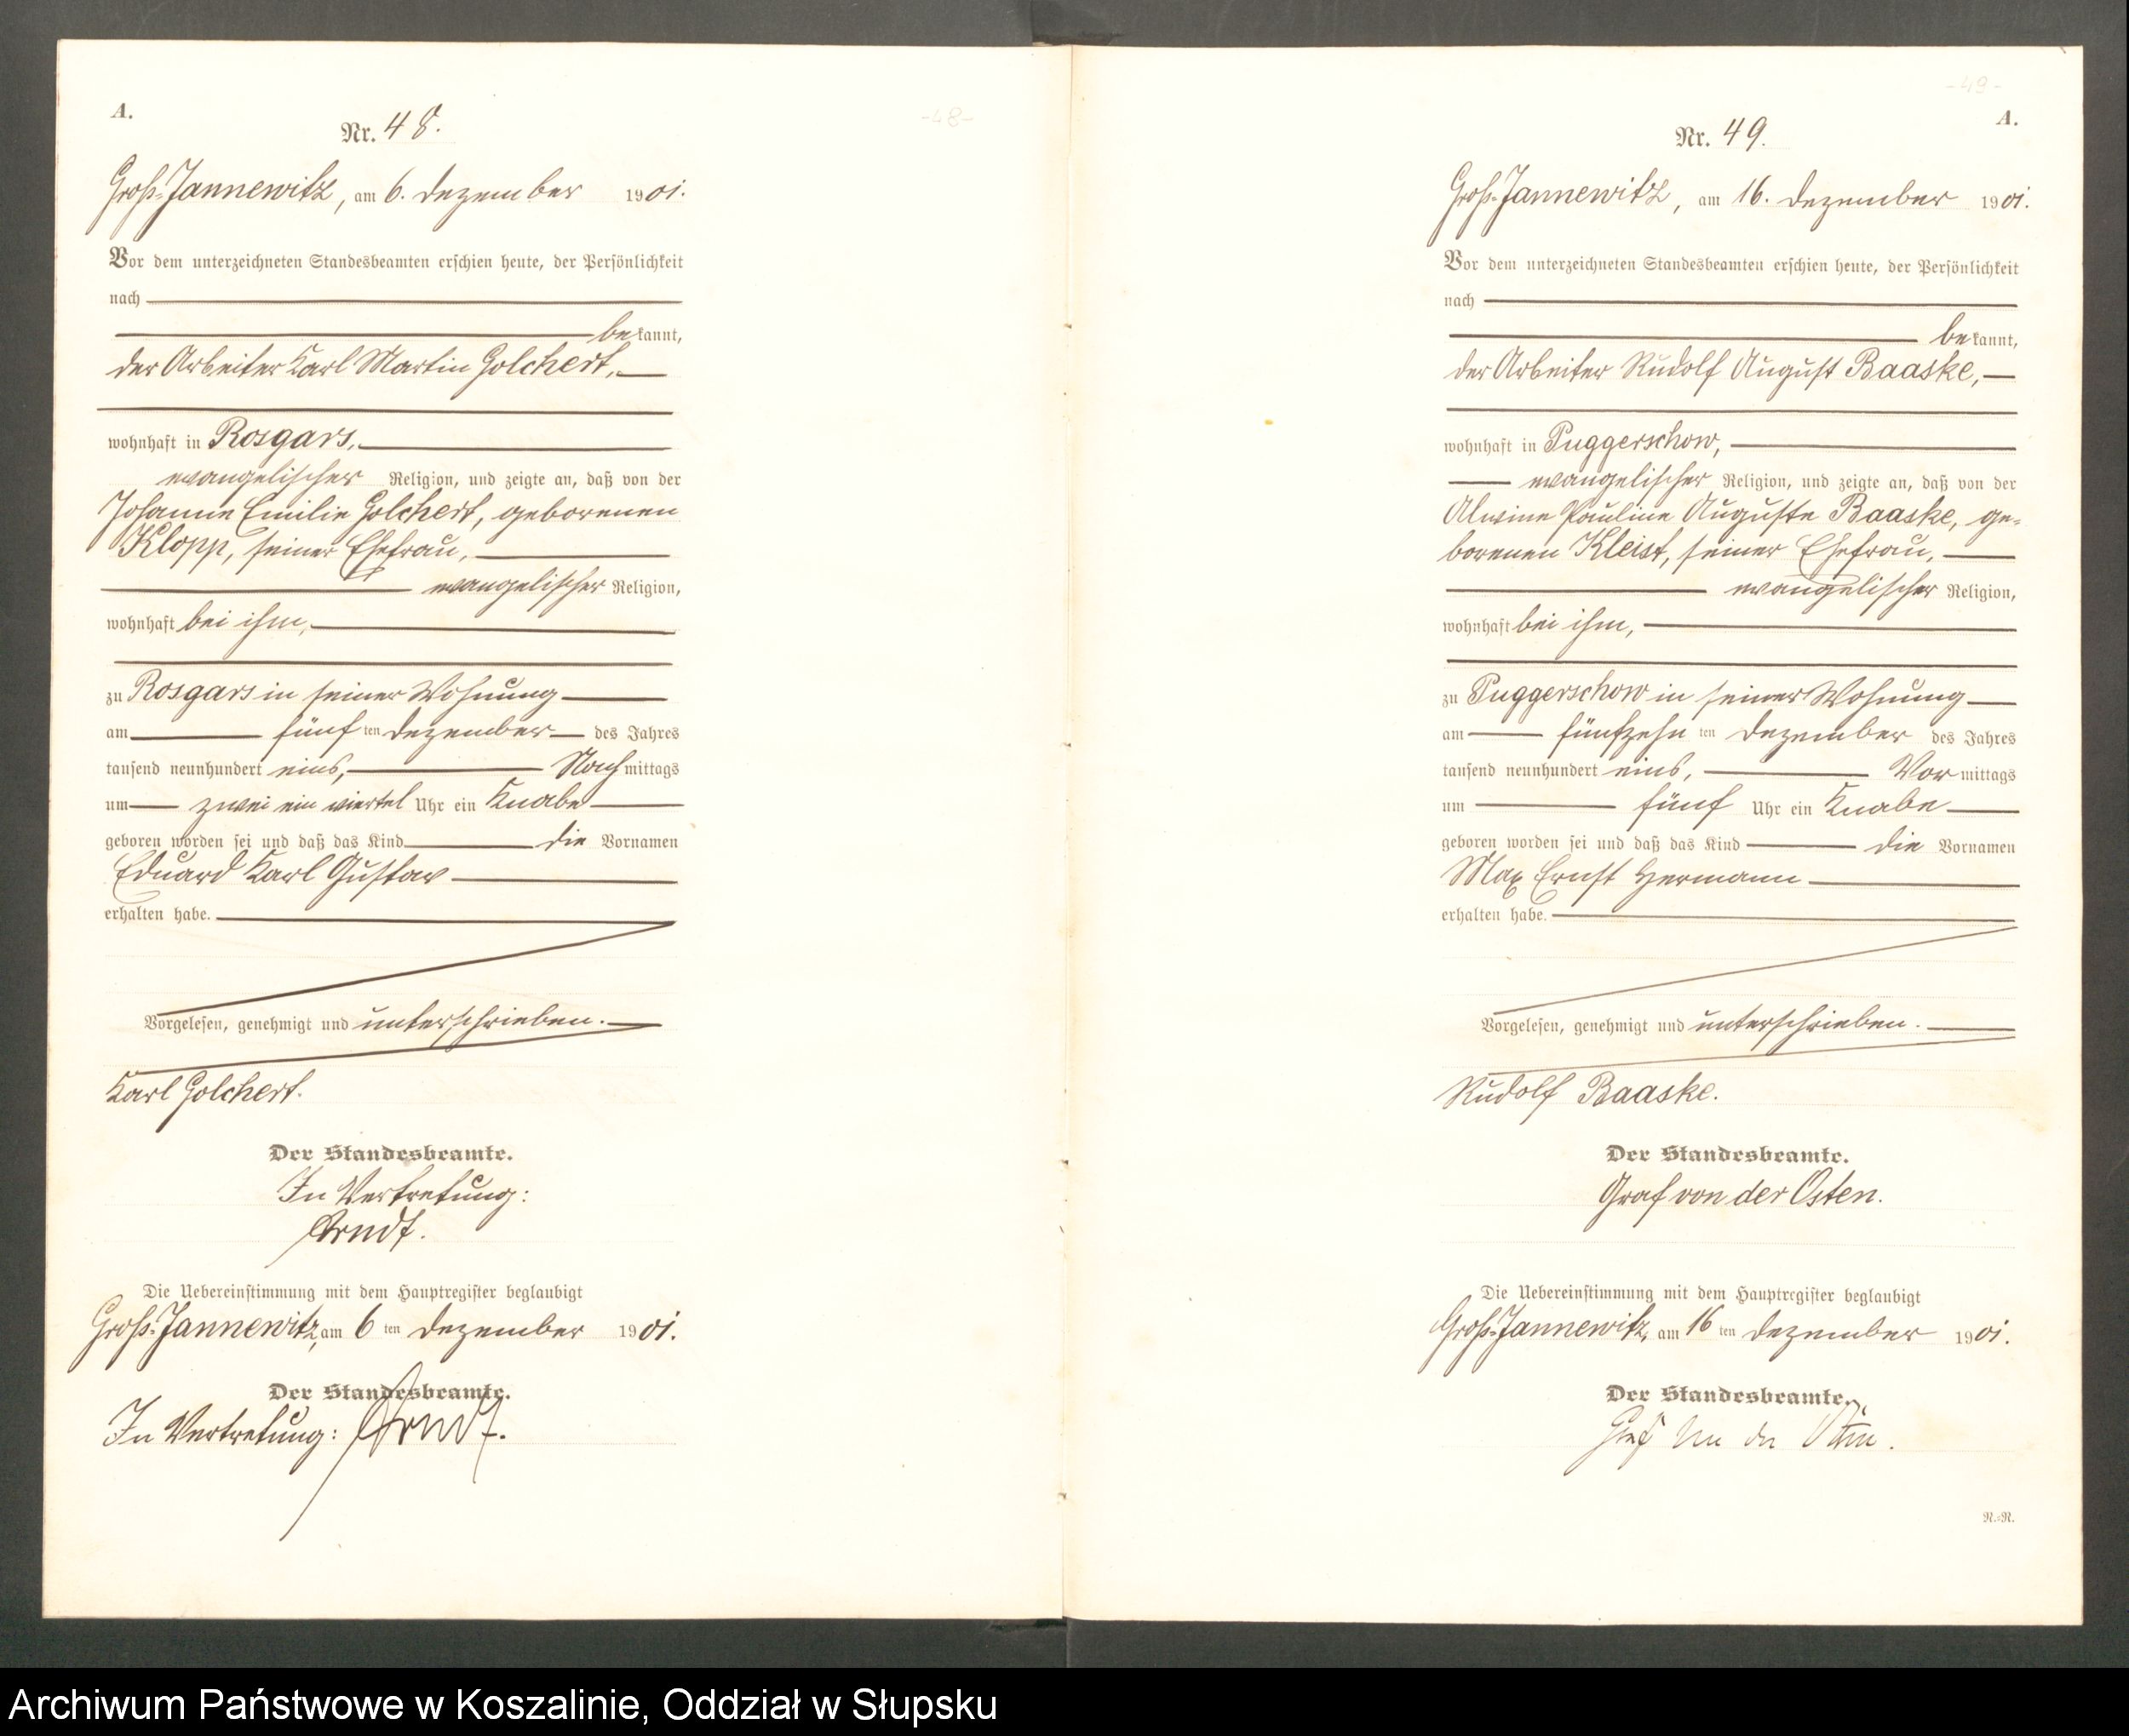 A.
Nr. 48.
-48-
Groß-Jannewitz, am 6. Dezember 1901.
Vor dem unterzeichneten Standesbeamten erschien heute, der Persönlichkeit
nach
bekannt,
der Arbeiter Karl Martin Golchert,
wohnhaft in Rosgars,
evangelischer Religion, und zeigte an, daß von der
Johanne Emilie Golchert, geborenen
Klopp, seiner Ehefrau,
evangelischer Religion,
wohnhaft bei ihm,
zu Rosgars in seiner Wohnung
am fünf ten Dezember des Jahres
tausend neunhundert eins, Nachmittags
um zwei ein viertel Uhr ein Knabe
geboren worden sei und daß das Kind die Vornamen
Eduard Karl Gustav
erhalten habe.
Vorgelesen, genehmigt und unterschrieben.
Karl Golchert.
Der Standesbeamte.
In Vertretung:
Arndt.
Die Uebereinstimmung mit dem Hauptregister beglaubigt
Groß-Jannewitz, am 6 ten Dezember 1901.
Der Standesbeamte.
In Vertretung: Arndt.
-49-
A.
Nr. 49.
Groß-Jannewitz, am 16. Dezember 1901.
Vor dem unterzeichneten Standesbeamten erschien heute, der Persönlichkeit
nach
bekannt,
der Arbeiter Rudolf August Baaske,
wohnhaft in Puggerschow,
evangelischer Religion, und zeigte an, daß von der
Alwine Pauline Auguste Baaske, ge-
borenen Kleist, seiner Ehefrau,
evangelischer Religion,
wohnhaft bei ihm,
zu Puggerschow in seiner Wohnung
am fünfzehn ten Dezember des Jahres
tausend neunhundert eins, Vormittags
um fünf Uhr ein Knabe
geboren worden sei und daß das Kind die Vornamen
Max Ernst Hermann
erhalten habe.
Vorgelesen, genehmigt und unterschrieben.
Rudolf Baaske.
Der Standesbeamte.
Graf von der Osten.
Die Uebereinstimmung mit dem Hauptregister beglaubigt
Groß-Jannewitz, am 16 ten Dezember 1901.
Der Standesbeamte.
Graf von der Osten.
R.-R.
Archiwum Państwowe w Koszalinie, Oddział w Słupsku